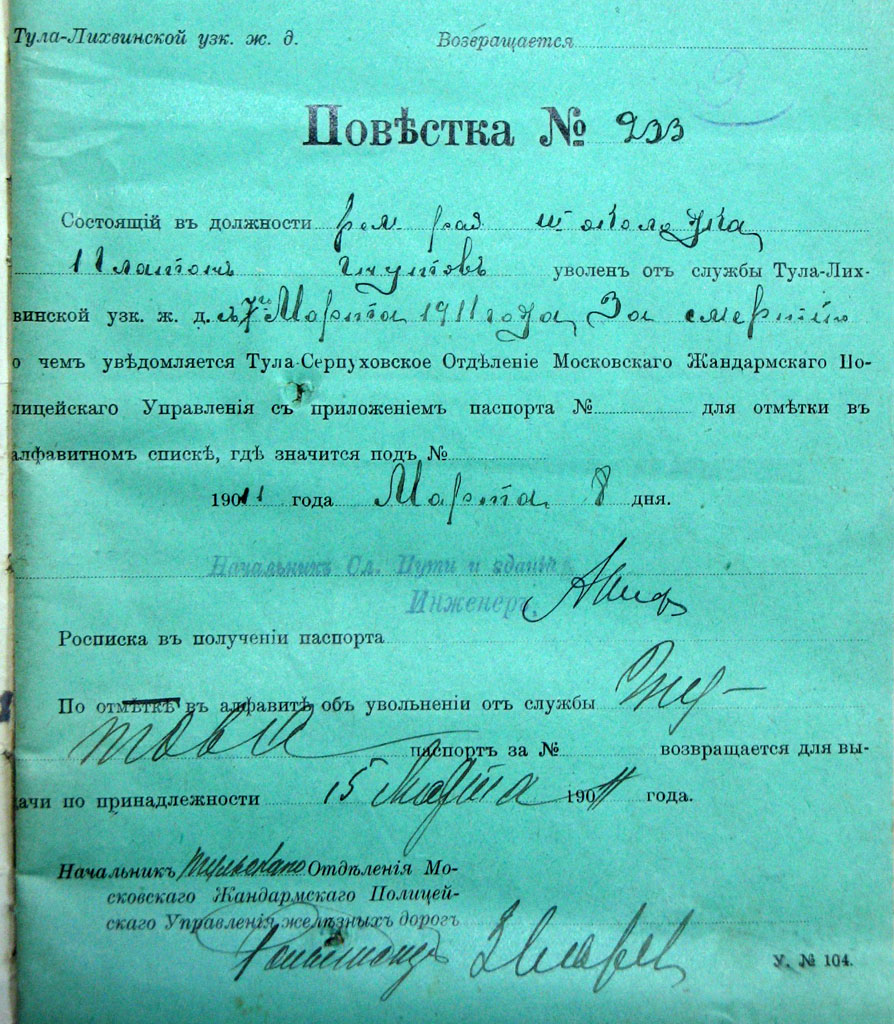 Тула-Лихвинской узк. ж. д. Возвращается
Повѣстка № 233
Состоящій въ должности рем. раб
Платонъ уволенъ отъ службы Тула-Лих-
винской узк. ж. д. съ 7го Марта 1911 года, За смертію
о чемъ увѣдомляется Тула-Серпуховское Отдѣленіе Московскаго Жандармскаго По-
лицейскаго Управленія съ приложеніемъ паспорта № для отмѣтки въ
алфавитномъ спискѣ, гдѣ значится подъ №
1911 года Марта 8 дня.
Начальникъ Сл. Пути и зданій
Инженеръ,
Росписка въ полученіи паспорта
По отмѣткѣ въ алфавитѣ объ увольненіи отъ службы
паспортъ за № возвращается для вы-
дачи по принадлежности 15 Марта 1911 года.
Начальникъ Тульскаго Отдѣленія Мо-
сковскаго Жандармскаго Полицей-
скаго Управленія желѣзныхъ дорогъ
Ротмистръ
У. № 104.